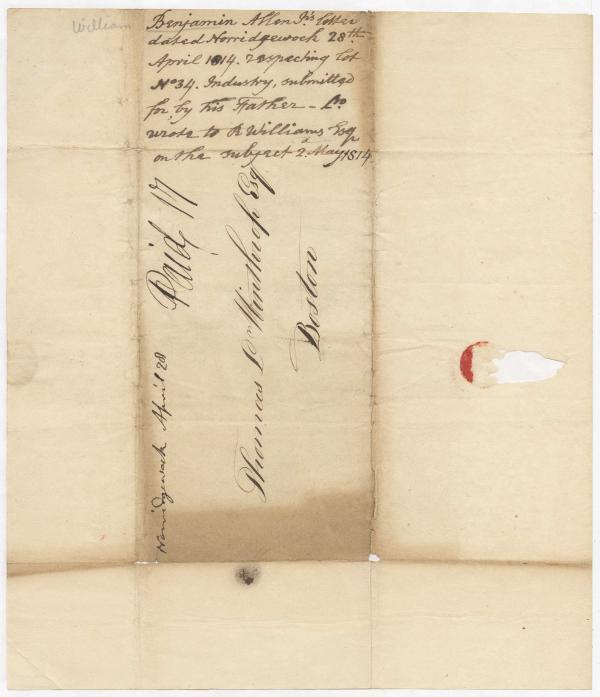 William
Benjamin Allen Jr's letter
dated Norridgewock 28th
April 1814. respecting lot
No 34. Industry, submitted
for by his Father -
wrote to R Williams Esq
on the subject 2d May 1814.
Norridgewock April 28
Paid 17
Thomas L Winthrop Esqr
Boston